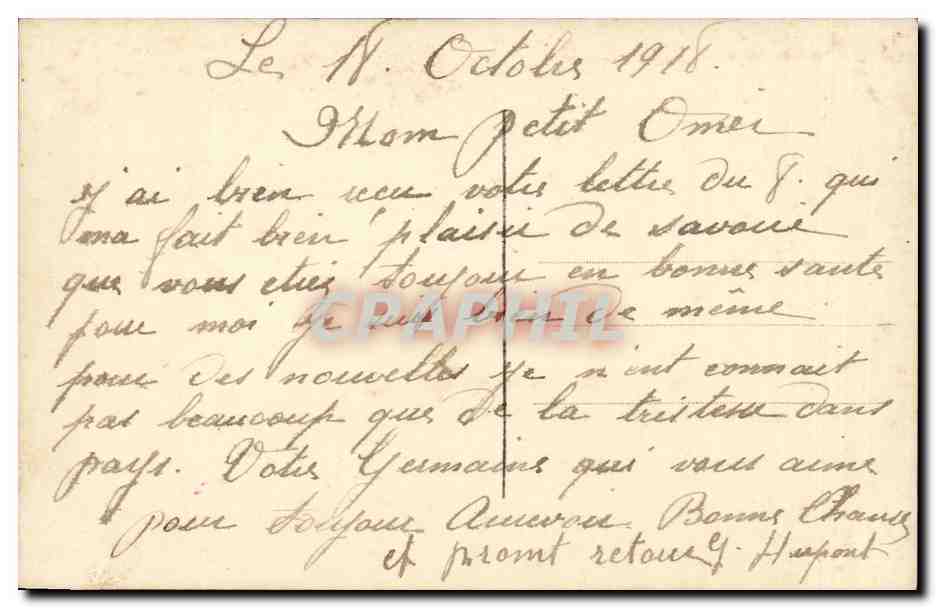 Le 18. Octobre 1918.
Mon petit Omer
j'ai bien recu votre lettre du 8. qui
ma fait bien plaisir de savoir
que vous eties toujour en bonne sante
pour moi je suis bien de même
pour des nouvelles je n'ent connait
pas beaucoup que de la tristesse dans
pays. Votre Germaine qui vous aime
pour toujour Aurevoir. Bonne Chance
et promt retour G. Hupont
CPAPHIL